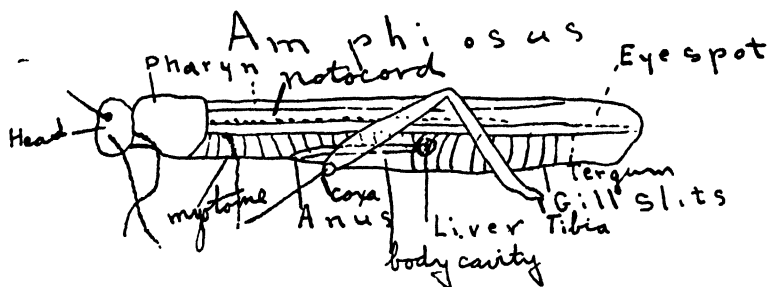 Amphiosus
Pharyn
notocord
Eye spot
Head
myotome
coxa
Anus
Liver
body cavity
Tibia
Tergum
Gill slits